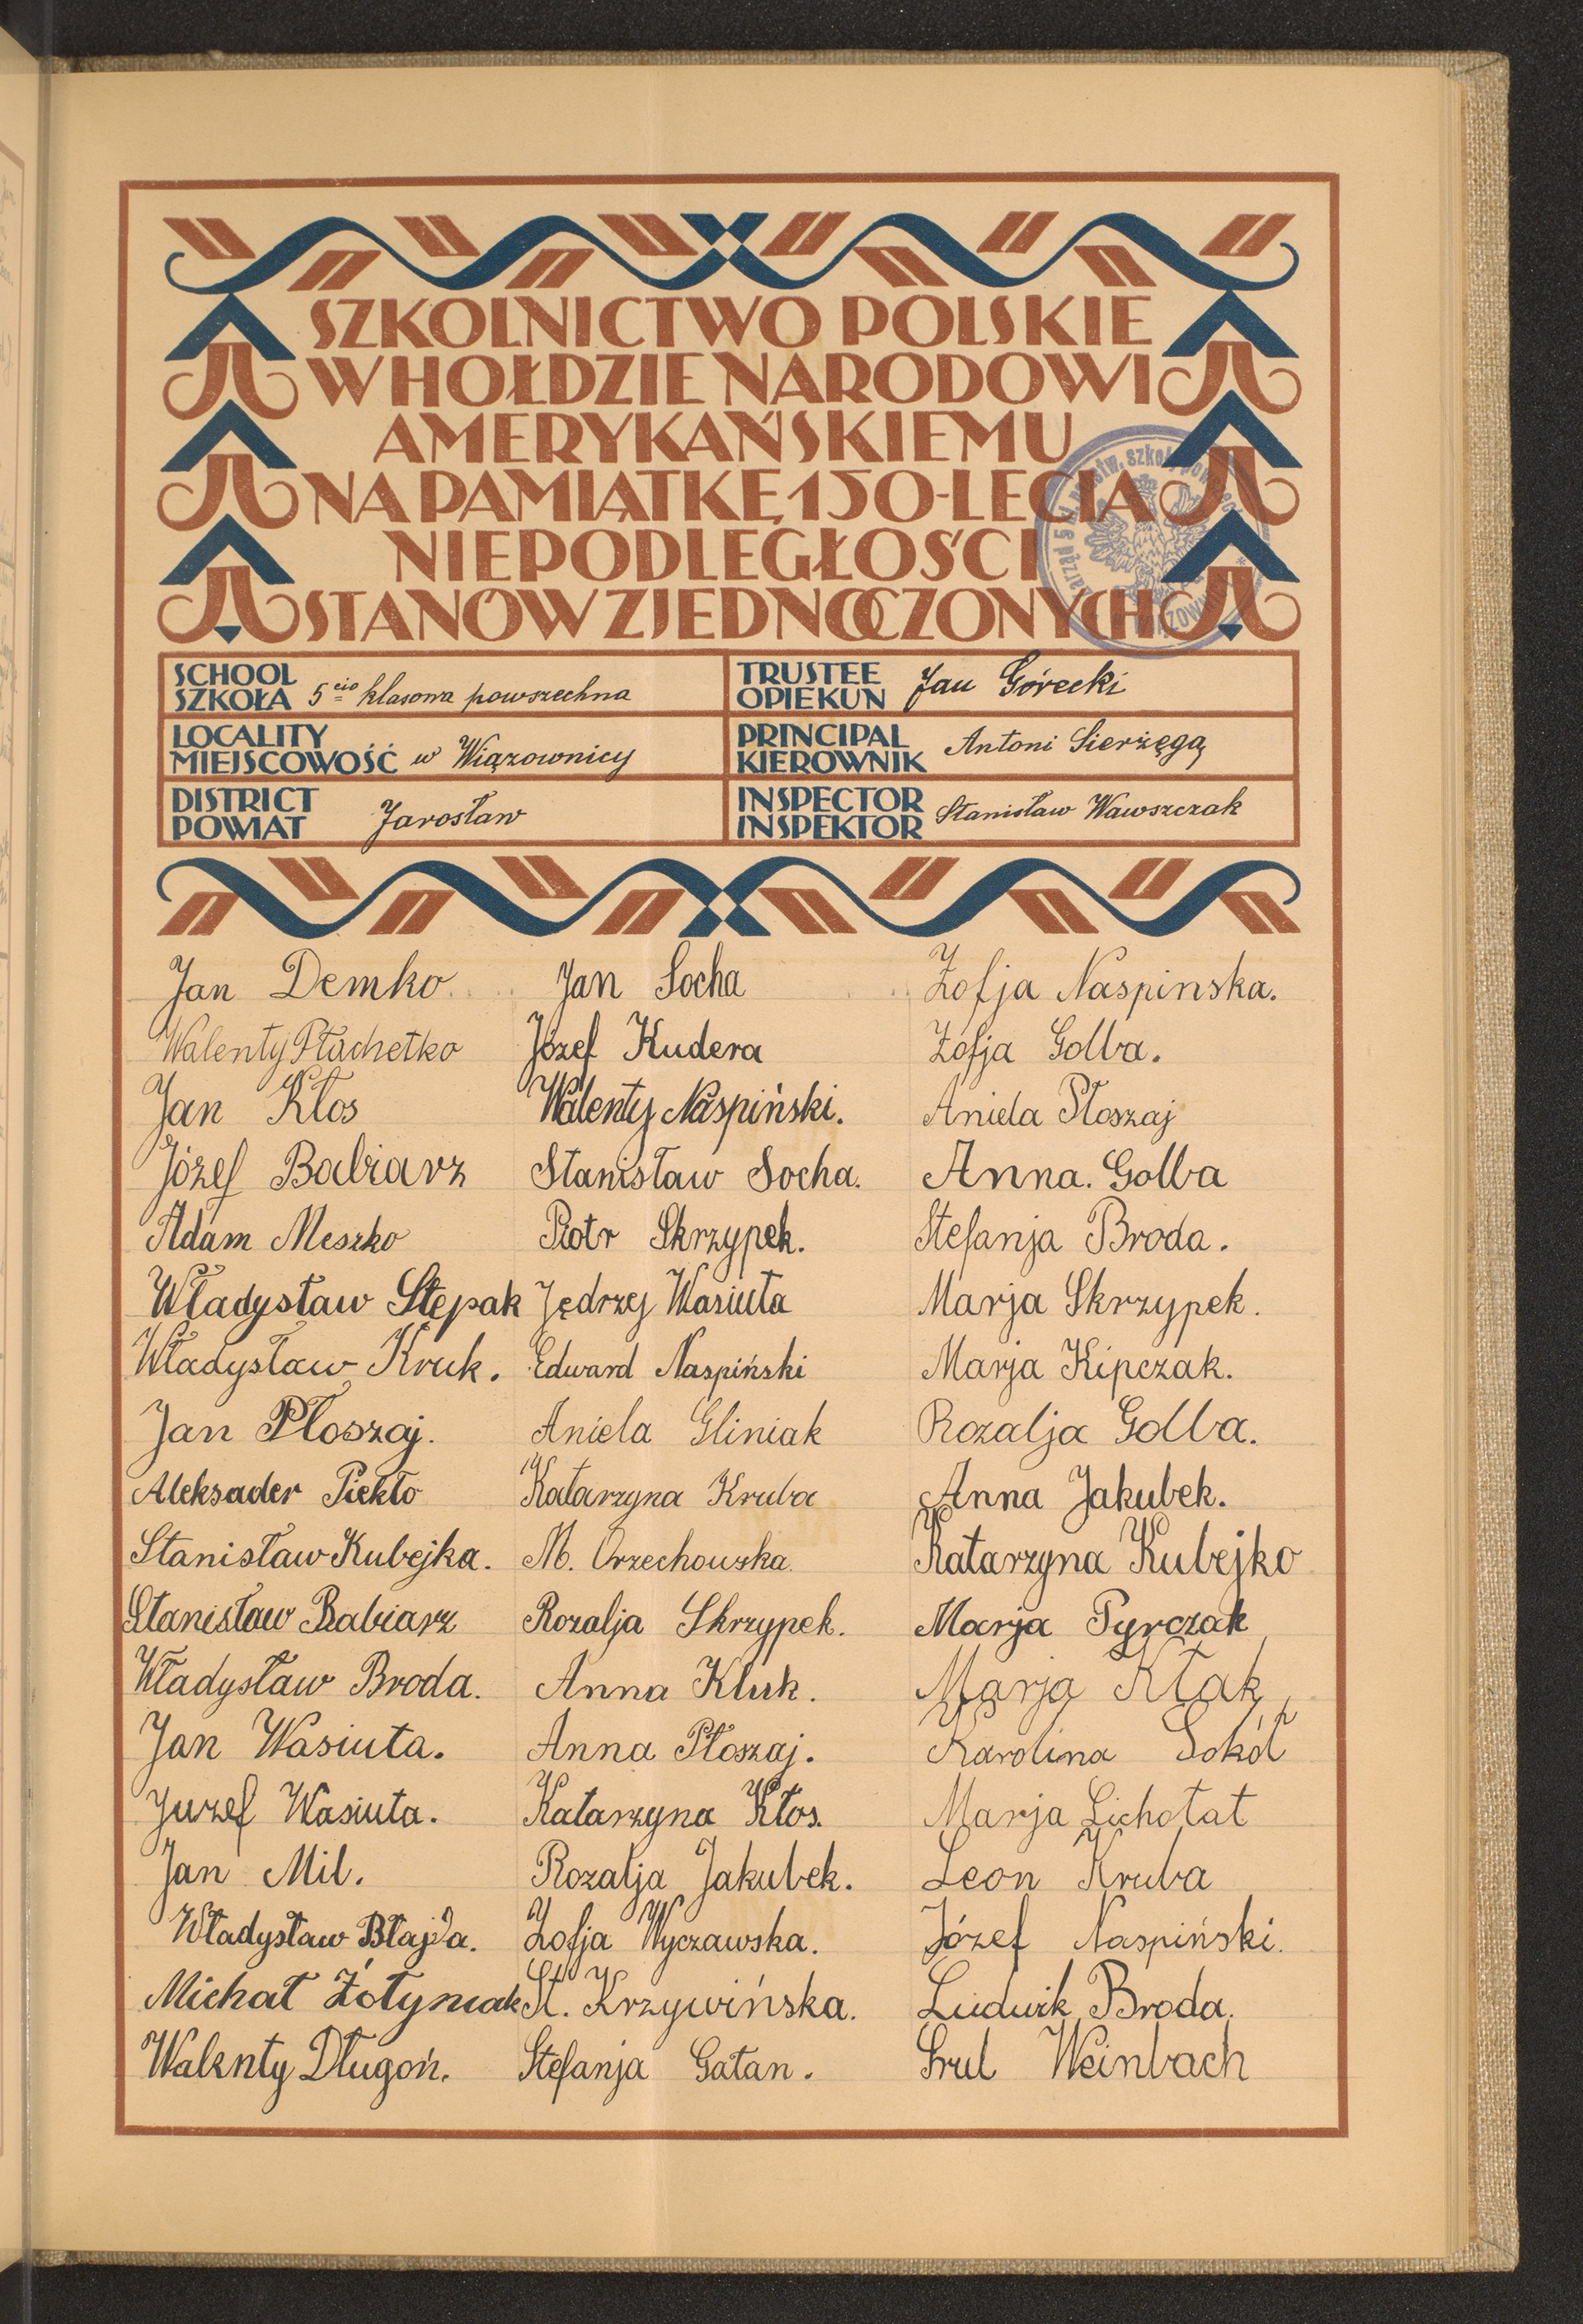 SZKOLNICTWO POLSKIE
W HOŁDZIE NARODOWI
AMERYKAŃSKIEMU
NA PAMIĄTKĘ 150-LECIA
NIEPODLEGŁOŚCI
STANÓW ZJEDNOCZONYCH
SCHOOL
SZKOŁA 5cio klasowa powszechna
TRUSTEE
OPIEKUN Jan Górecki
LOCALITY
MIEJSCOWOŚĆ w Wiązownicy
PRINCIPAL
KIEROWNIK Antoni Sierżęga
DISTRICT
POWIAT Jarosław
INSPECTOR
INSPEKTOR Stanisław Wawszczak
Jan Demko
Walenty Płachetko
Jan Kłos
Józef Babiarz
Adam Meszko
Władysław Stepak
Władysław Kruk.
Jan Płoszaj.
Aleksader Piekło
Stanisław Kubejka.
Stanisław Babiarz
Władysław Broda.
Jan Wasiuta.
Juzef Wasiuta.
Jan Mil.
Władysław Błajda.
Michał Żołyniak
Walenty Długoń.
Jan Socha
Józef Kudera
Walenty Naspiński.
Stanisław Socha.
Piotr Skrzypek.
Jędrzej Wasiuta
Edward Naspiński
Aniela Gliniak
Katarzyna Kruba
M. Orzechowska.
Rozalja Skrzypek.
Anna Kluk.
Anna Płoszaj.
Katarzyna Kłos.
Rozalja Jakubek.
Zofja Wyczawska.
St. Krzywińska.
Stefanja Gatan.
Zofja Naspinska.
Zofja Golba.
Aniela Płoszaj
Anna. Golba
Stefanja Broda.
Marja Skrzypek.
Marja Kipczak.
Rozalja Golba.
Anna Jakubek.
Katarzyna Kubejko
Marja Pyrczak
Marja Kłak
Karolina Sokół
Marja Lichołat
Leon Kruba
Józef Naspiński.
Ludwik Broda.
Srul Weinbach